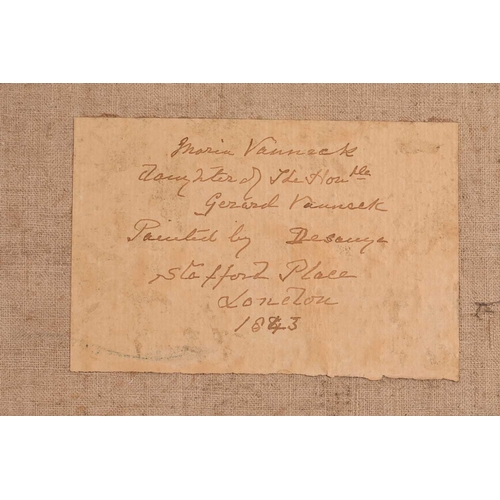 Maria Vanneck
daughter of The Honble
Gerard Vanneck
Painted by Desanges
Stafford Place
London
1843